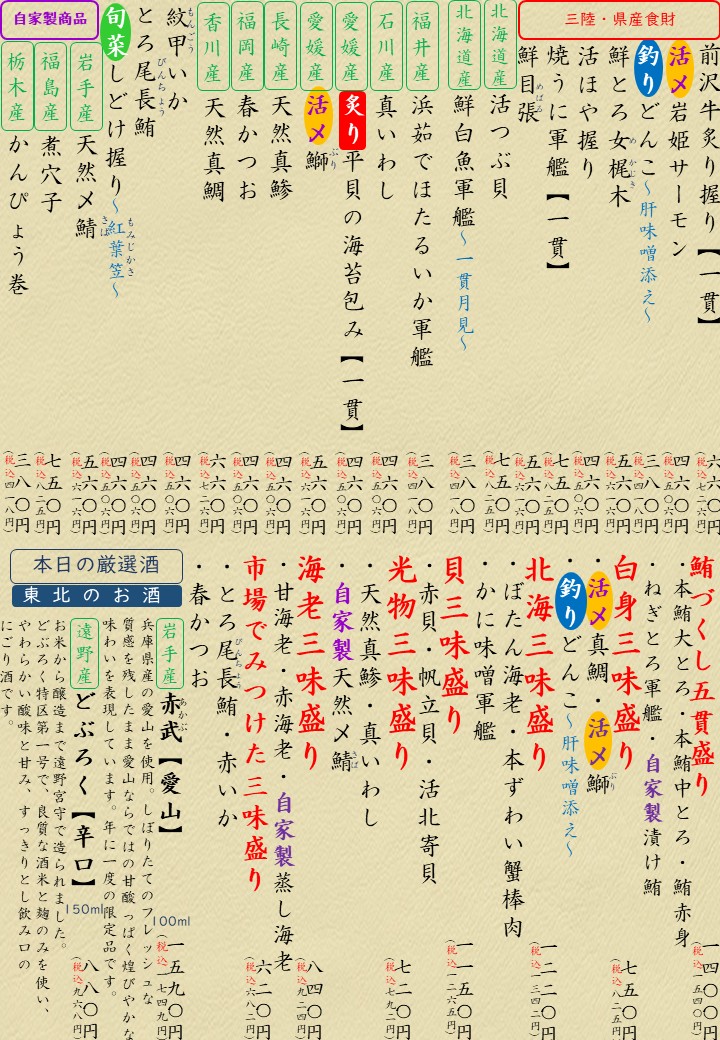 三陸・県産食財
前沢牛炙り握り【一貫】 六六〇円 (税込七二六円)
活〆岩姫サーモン 四六〇円 (税込五〇六円)
釣りどんこ～肝味噌添え～ 三八〇円 (税込四一八円)
鮮とろ女梶木 五六〇円 (税込六一六円)
めかじき
活ほや握り 四六〇円 (税込五〇六円)
焼うに軍艦【一貫】 七五〇円 (税込八二五円)
鮮目張 五六〇円 (税込六一六円)
めばる
北海道産 活つぶ貝 七五〇円 (税込八二五円)
北海道産 鮮白魚軍艦～一貫月見～ 三八〇円 (税込四一八円)
福井産 浜茹でほたるいか軍艦 三八〇円 (税込四一八円)
石川産 真いわし 四六〇円 (税込五〇六円)
愛媛産 炙り平貝の海苔包み【一貫】 四六〇円 (税込五〇六円)
愛媛産 活〆鰤 五六〇円 (税込六一六円)
ぶり
長崎産 天然真鯵 四六〇円 (税込五〇六円)
福岡産 春かつお 四六〇円 (税込五〇六円)
香川産 天然真鯛 六六〇円 (税込七二六円)
紋甲いか 四六〇円 (税込五〇六円)
もんごう
とろ尾長鮪 四六〇円 (税込五〇六円)
びんちょう
旬菜しどけ握り～紅葉笠～ 四六〇円 (税込五〇六円)
もみじかさ
自家製商品
岩手産 天然〆鯖 五六〇円 (税込六一六円)
さば
福島産 煮穴子 七五〇円 (税込八二五円)
栃木産 かんぴょう巻 三八〇円 (税込四一八円)
鮪づくし五貫盛り 一四〇〇円 (税込一五四〇円)
・本鮪大とろ・本鮪中とろ・鮪赤身
・ねぎとろ軍艦・自家製漬け鮪
白身三味盛り 七五〇円 (税込八二五円)
・活〆真鯛・活〆鰤
ぶり
・釣りどんこ～肝味噌添え～
北海三味盛り 一二二〇円 (税込一三四二円)
・ぼたん海老・本ずわい蟹棒肉
・かに味噌軍艦
貝三味盛り 一一五〇円 (税込一二六五円)
・赤貝・帆立貝・活北寄貝
光物三味盛り 七二〇円 (税込七九二円)
・天然真鯵・真いわし
・自家製天然〆鯖
さば
海老三味盛り 八四〇円 (税込九二四円)
・甘海老・赤海老・自家製蒸し海老
市場でみつけた三味盛り 六二〇円 (税込六八二円)
・とろ尾長鮪・赤いか
びんちょう
・春かつお
本日の厳選酒
東北のお酒
岩手産 赤武【愛山】 100ml 一五九〇円 (税込一七四九円)
あかぶ
兵庫県産の愛山を使用。しぼりたてのフレッシュな
質感を残したまま愛山ならではの甘酸っぱく煌びやかな
味わいを表現しています。年に一度の限定品です。
遠野産 どぶろく【辛口】 150ml 八八〇円 (税込九六八円)
お米から醸造まで遠野宮守で造られました。
どぶろく特区第一号で、良質な酒米と麹のみを使い、
やわらかい酸味と甘み、すっきりとし飲み口の
にごり酒です。